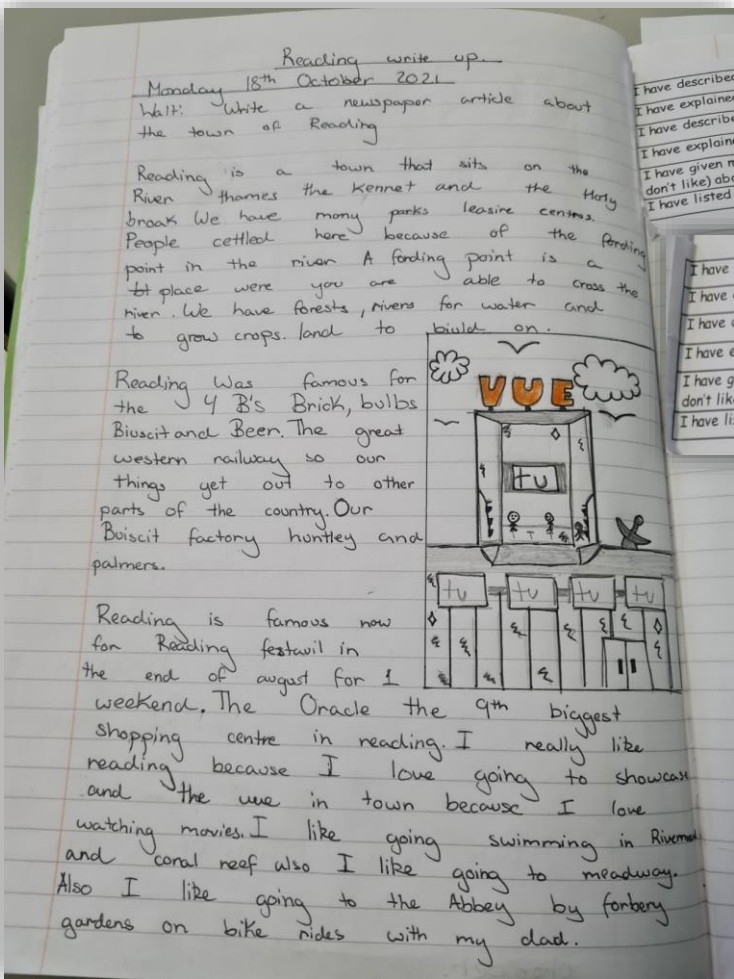 Reading write up.
Monday 18th October 2021
Walt: Write a newspaper article about
the town of Reading
Reading is a town that sits on the
River thames the Kennet and the Holy
brook We have many parks leasire centres.
People cettled here because of the fording
point in the river A fording point is a
place were you are able to cross the
river. We have forests, rivers for water and
to grow crops. land to biuld on.
Reading Was famous for
the 4 B's Brick, bulbs
Biuscit and Beer. The great
western railway so our
things get out to other
parts of the country. Our
Buiscit factory huntley and
palmers.
VUE
tu
tu tu tu tu
Reading is famous now
for Reading festavil in
the end of august for 1
weekend. The Oracle the 9th biggest
shopping centre in reading. I really like
reading because I love going to showcase
and the vue in town because I love
watching movies. I like going swimming in
and coral reef also I like going to meadway.
Also I like going to the Abbey by forbery
gardens on bike rides with my dad.
I have described
I have explained
I have describe
I have explain
I have given
don't like) abo
I have listed
I have
I have
I have
I have e
I have g
don't lik
I have li